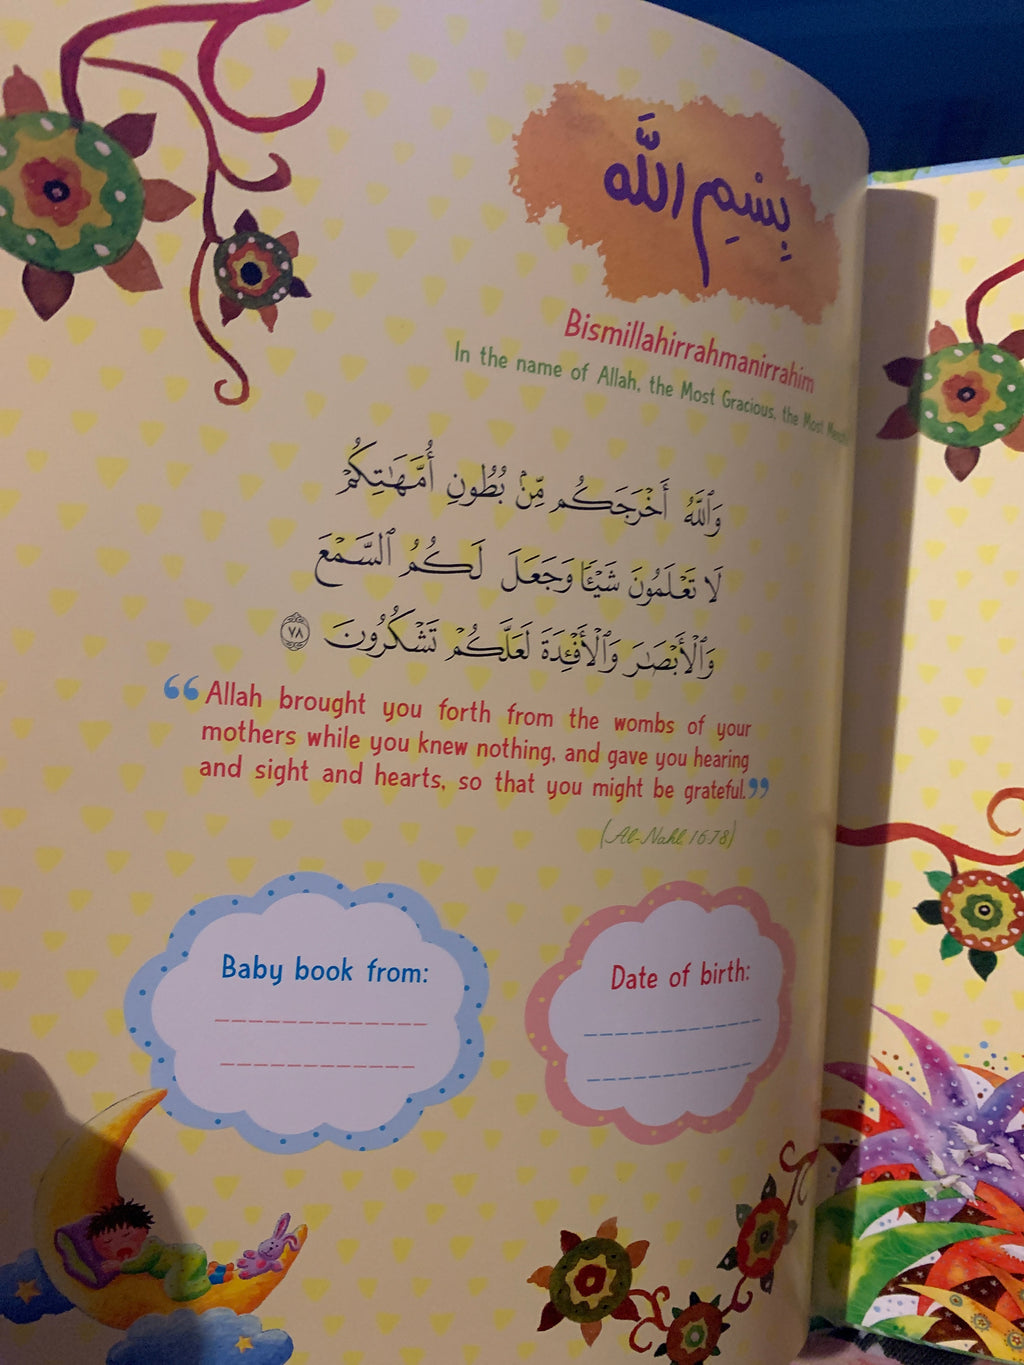 بِسْمِ اللَّه
Bismillahirrahmanirrahim
In the name of Allah, the Most Gracious, the Most
وَٱللَّهُ أَخْرَجَكُم مِّنۢ بُطُونِ أُمَّهَـٰتِكُمْ
لَا تَعْلَمُونَ شَيْـًٔا وَجَعَلَ لَكُمُ ٱلسَّمْعَ
وَٱلْأَبْصَـٰرَ وَٱلْأَفْـِٔدَةَ لَعَلَّكُمْ تَشْكُرُونَ ٧٨
“Allah brought you forth from the wombs of your
mothers while you knew nothing, and gave you hearing
and sight and hearts, so that you might be grateful.”
(Al-Nahl, 16:78)
Baby book from:
Date of birth: